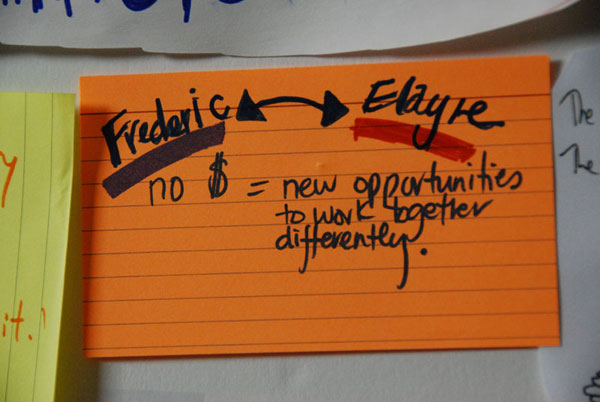 Frederic ↔ Elayne
no $ = new opportunities
to work together
differently.
it.
The
The